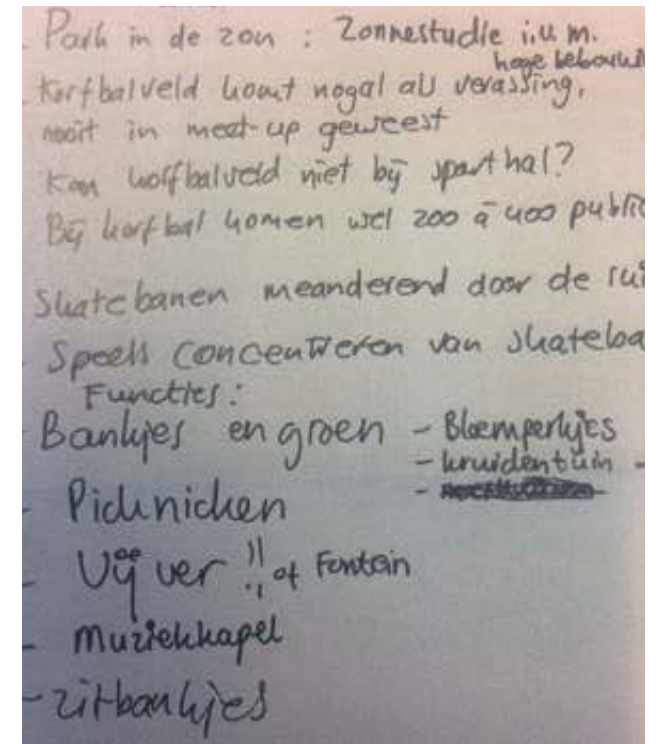 - Park in de zon : Zonnestudie i.v.m.
hoge bebouwi
- Korfbalveld komt nogal als verassing,
nooit in meet-up geweest
Kan korfbalveld niet bij sporthal?
Bij korfbal komen wel 200 à 400 public
Skatebanen meanderend door de rui
- Speels concentreren van skateba
Functies:
- Bankjes en groen - Bloemperkjes
- kruidentuin -
- Picknicken
- Vijver !! of Fontein
- Muziekkapel
- zitbankjes